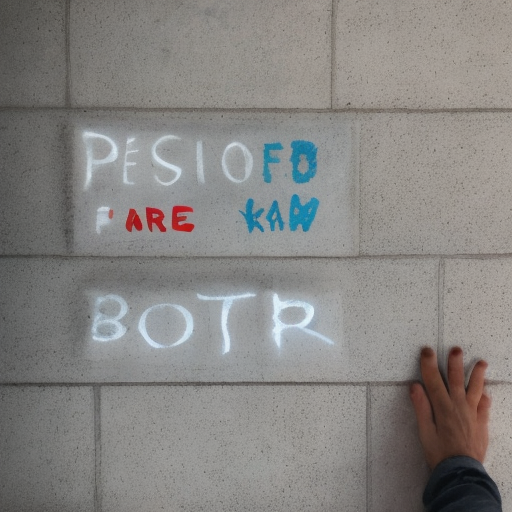 PESIOFD
PARE KAW
BOTR